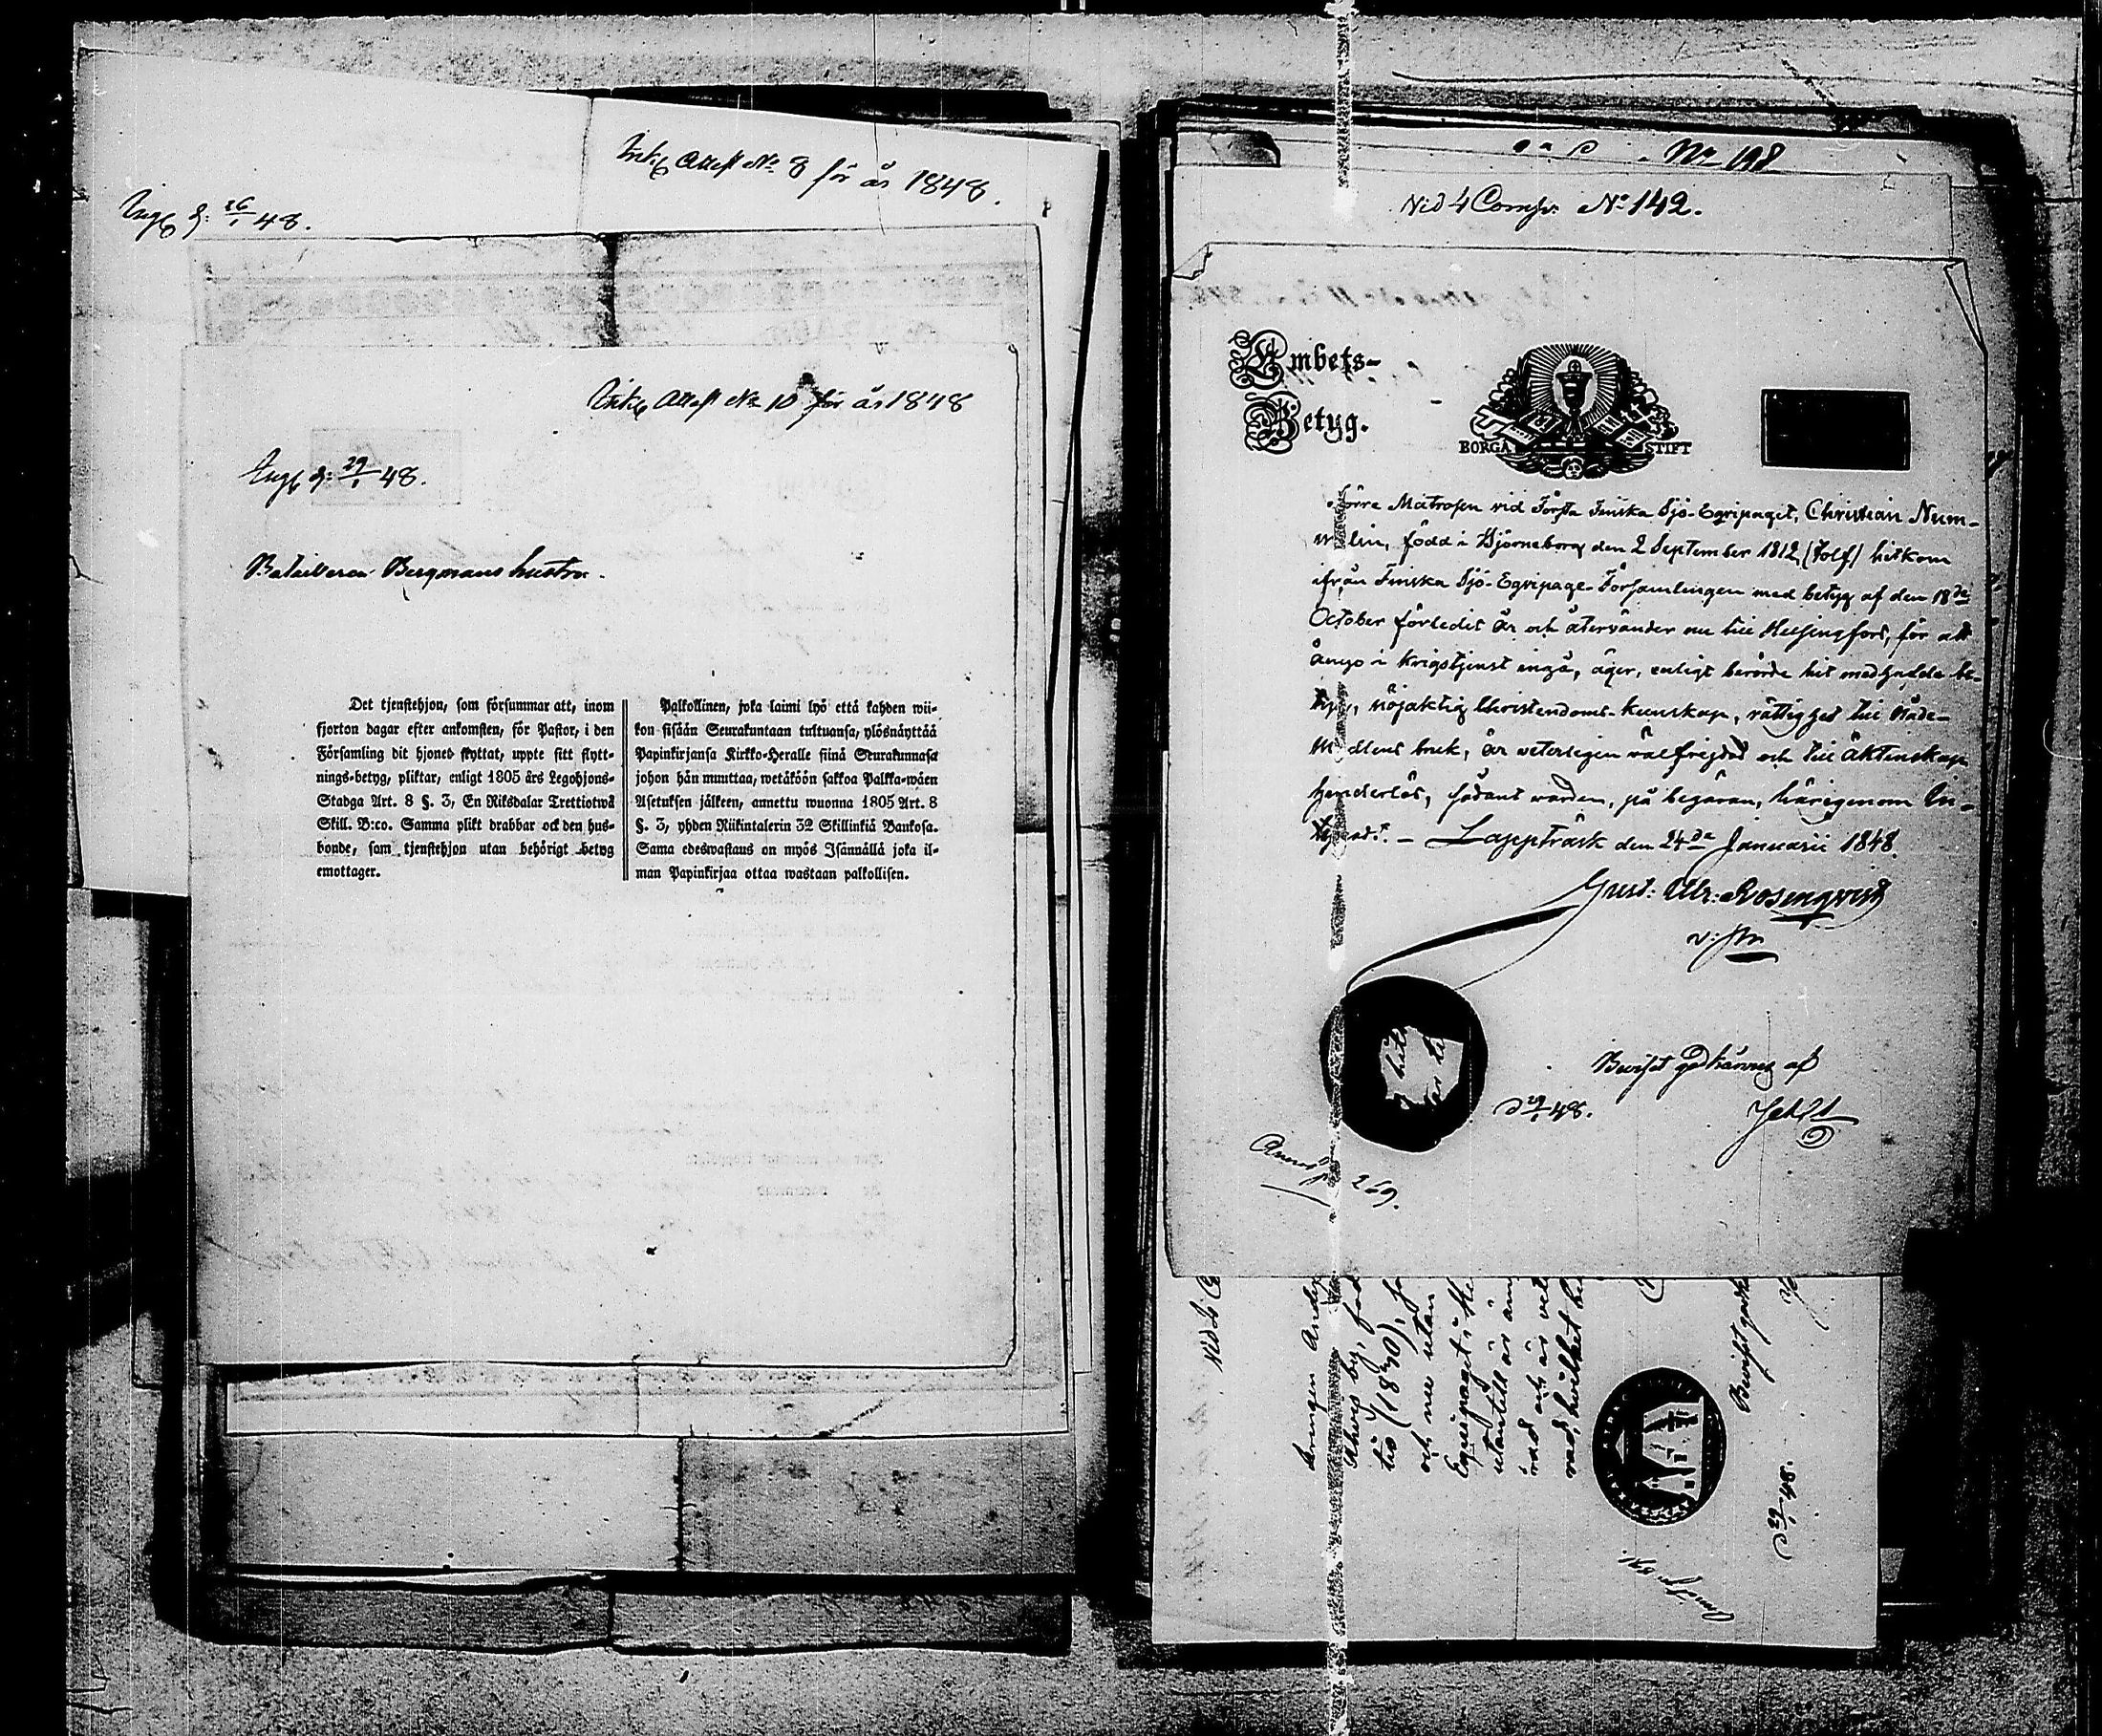 Attest No 8 för år 1848.
d: 26/1 48.
Attest No 10 för år 1848
d: 29/1 48.
Bergmans hustru.
Det tjenstehjon, som försummar att, inom
fjorton dagar efter ankomsten, för Pastor, i den
Församling dit hjonet flyttat, uppte sitt flytt-
nings-betyg, pliktar, enligt 1805 års Legohjons-
Stadga Art. 8 §. 3, En Riksdalar Trettiotwå
Skill. B:co. Samma plikt drabbar ock den hus-
bonde, som tjenstehjon utan behörigt betyg
emottager.
Palkollinen, joka laimi lyö että kahden wii-
kon sisään Seurakuntaan tultuansa, ylösnäyttää
Papinkirjansa Kirkko-Heralle siinä Seurakunnasa
johon hän muuttaa, wetäköön sakkoa Palkka-wäen
Asetuksen jälkeen, annettu wuonna 1805 Art. 8
§. 3, yhden Riikintalerin 32 Skillinkiä Bankosa.
Sama edeswastaus on myös Isännällä joka il-
man Papinkirjaa ottaa wastaan palkollisen.
No 198
Vid 4 Comp: No 142.
Embets-
Betyg.
BORGÅ STIFT
förre Matrosen vid Första Finska Sjö-Eqvipaget, Christian Num-
melin, född i Björneborg den 2 September 1812 (tolf) hitkom
ifrån Finska Sjö-Eqvipage-Församlingen med betyg af den 18de
October förledit år och återvänder nu till Helsingfors, för att
ånyo i Krigstjenst ingå, äger, enligt berörde hit medhafda be-
tyg, nöjaktig Christendoms-kunskap, rättighet till Nåde-
Medlens bruk, är veterligen välfrejdad och till Äktenskap
hinderlös, sådant warder, på begäran, härigenom
Lappträsk den 24de Januarii 1848.
Gust: Ulr: Rosenqvist
Beviset godkännes af
d 29/1 48.
269.
drengen Anders
by, föd
tio (1830), 
och nu utan
Equipaget; 
utantill är
och är vet
hvilket
Beviset godk
d 29/1 48.